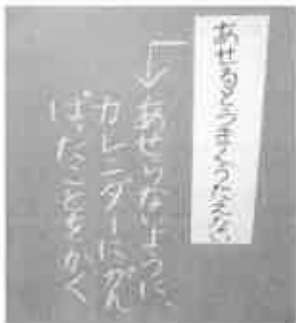 あせるとうまくうたえない
あせらないように、
カレンダーにがん
ばったことをかく